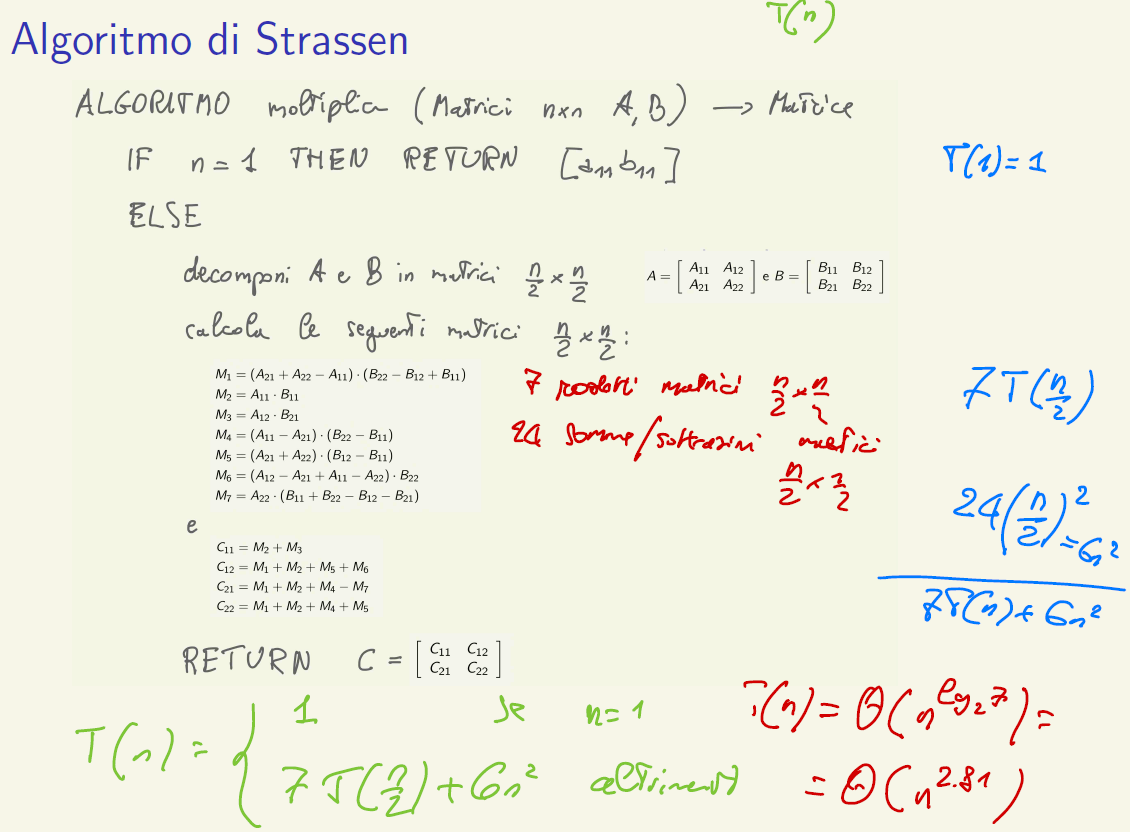 T(n)
Algoritmo di Strassen
ALGORITMO moltiplica (Matrici n×n A, B) → Matrice
IF n = 1 THEN RETURN [a₁₁b₁₁]
T(1) = 1
ELSE
decomponi A e B in matrici n/2 × n/2
A = [ A₁₁ A₁₂ ; A₂₁ A₂₂ ] e B = [ B₁₁ B₁₂ ; B₂₁ B₂₂ ]
calcola le seguenti matrici n/2 × n/2 :
M₁ = (A₂₁ + A₂₂ − A₁₁) · (B₂₂ − B₁₂ + B₁₁)
M₂ = A₁₁ · B₁₁
M₃ = A₁₂ · B₂₁
M₄ = (A₁₁ − A₂₁) · (B₂₂ − B₁₂)
M₅ = (A₂₁ + A₂₂) · (B₁₂ − B₁₁)
M₆ = (A₁₂ − A₂₁ + A₁₁ − A₂₂) · B₂₂
M₇ = A₂₂ · (B₁₁ + B₂₂ − B₁₂ − B₂₁)
7 prodotti matrici n/2 × n/2
24 somme/sottrazioni matrici
n/2 × n/2
7T(n/2)
24(n/2)² = 6n²
7T(n) + 6n²
e
C₁₁ = M₂ + M₃
C₁₂ = M₁ + M₂ + M₅ + M₆
C₂₁ = M₁ + M₂ + M₄ − M₇
C₂₂ = M₁ + M₂ + M₄ + M₅
RETURN C = [ C₁₁ C₁₂ ; C₂₁ C₂₂ ]
T(n) = { 1 se n = 1
7T(n/2) + 6n² altrimenti
T(n) = Θ(n^log₂7) =
= Θ(n^2.81)